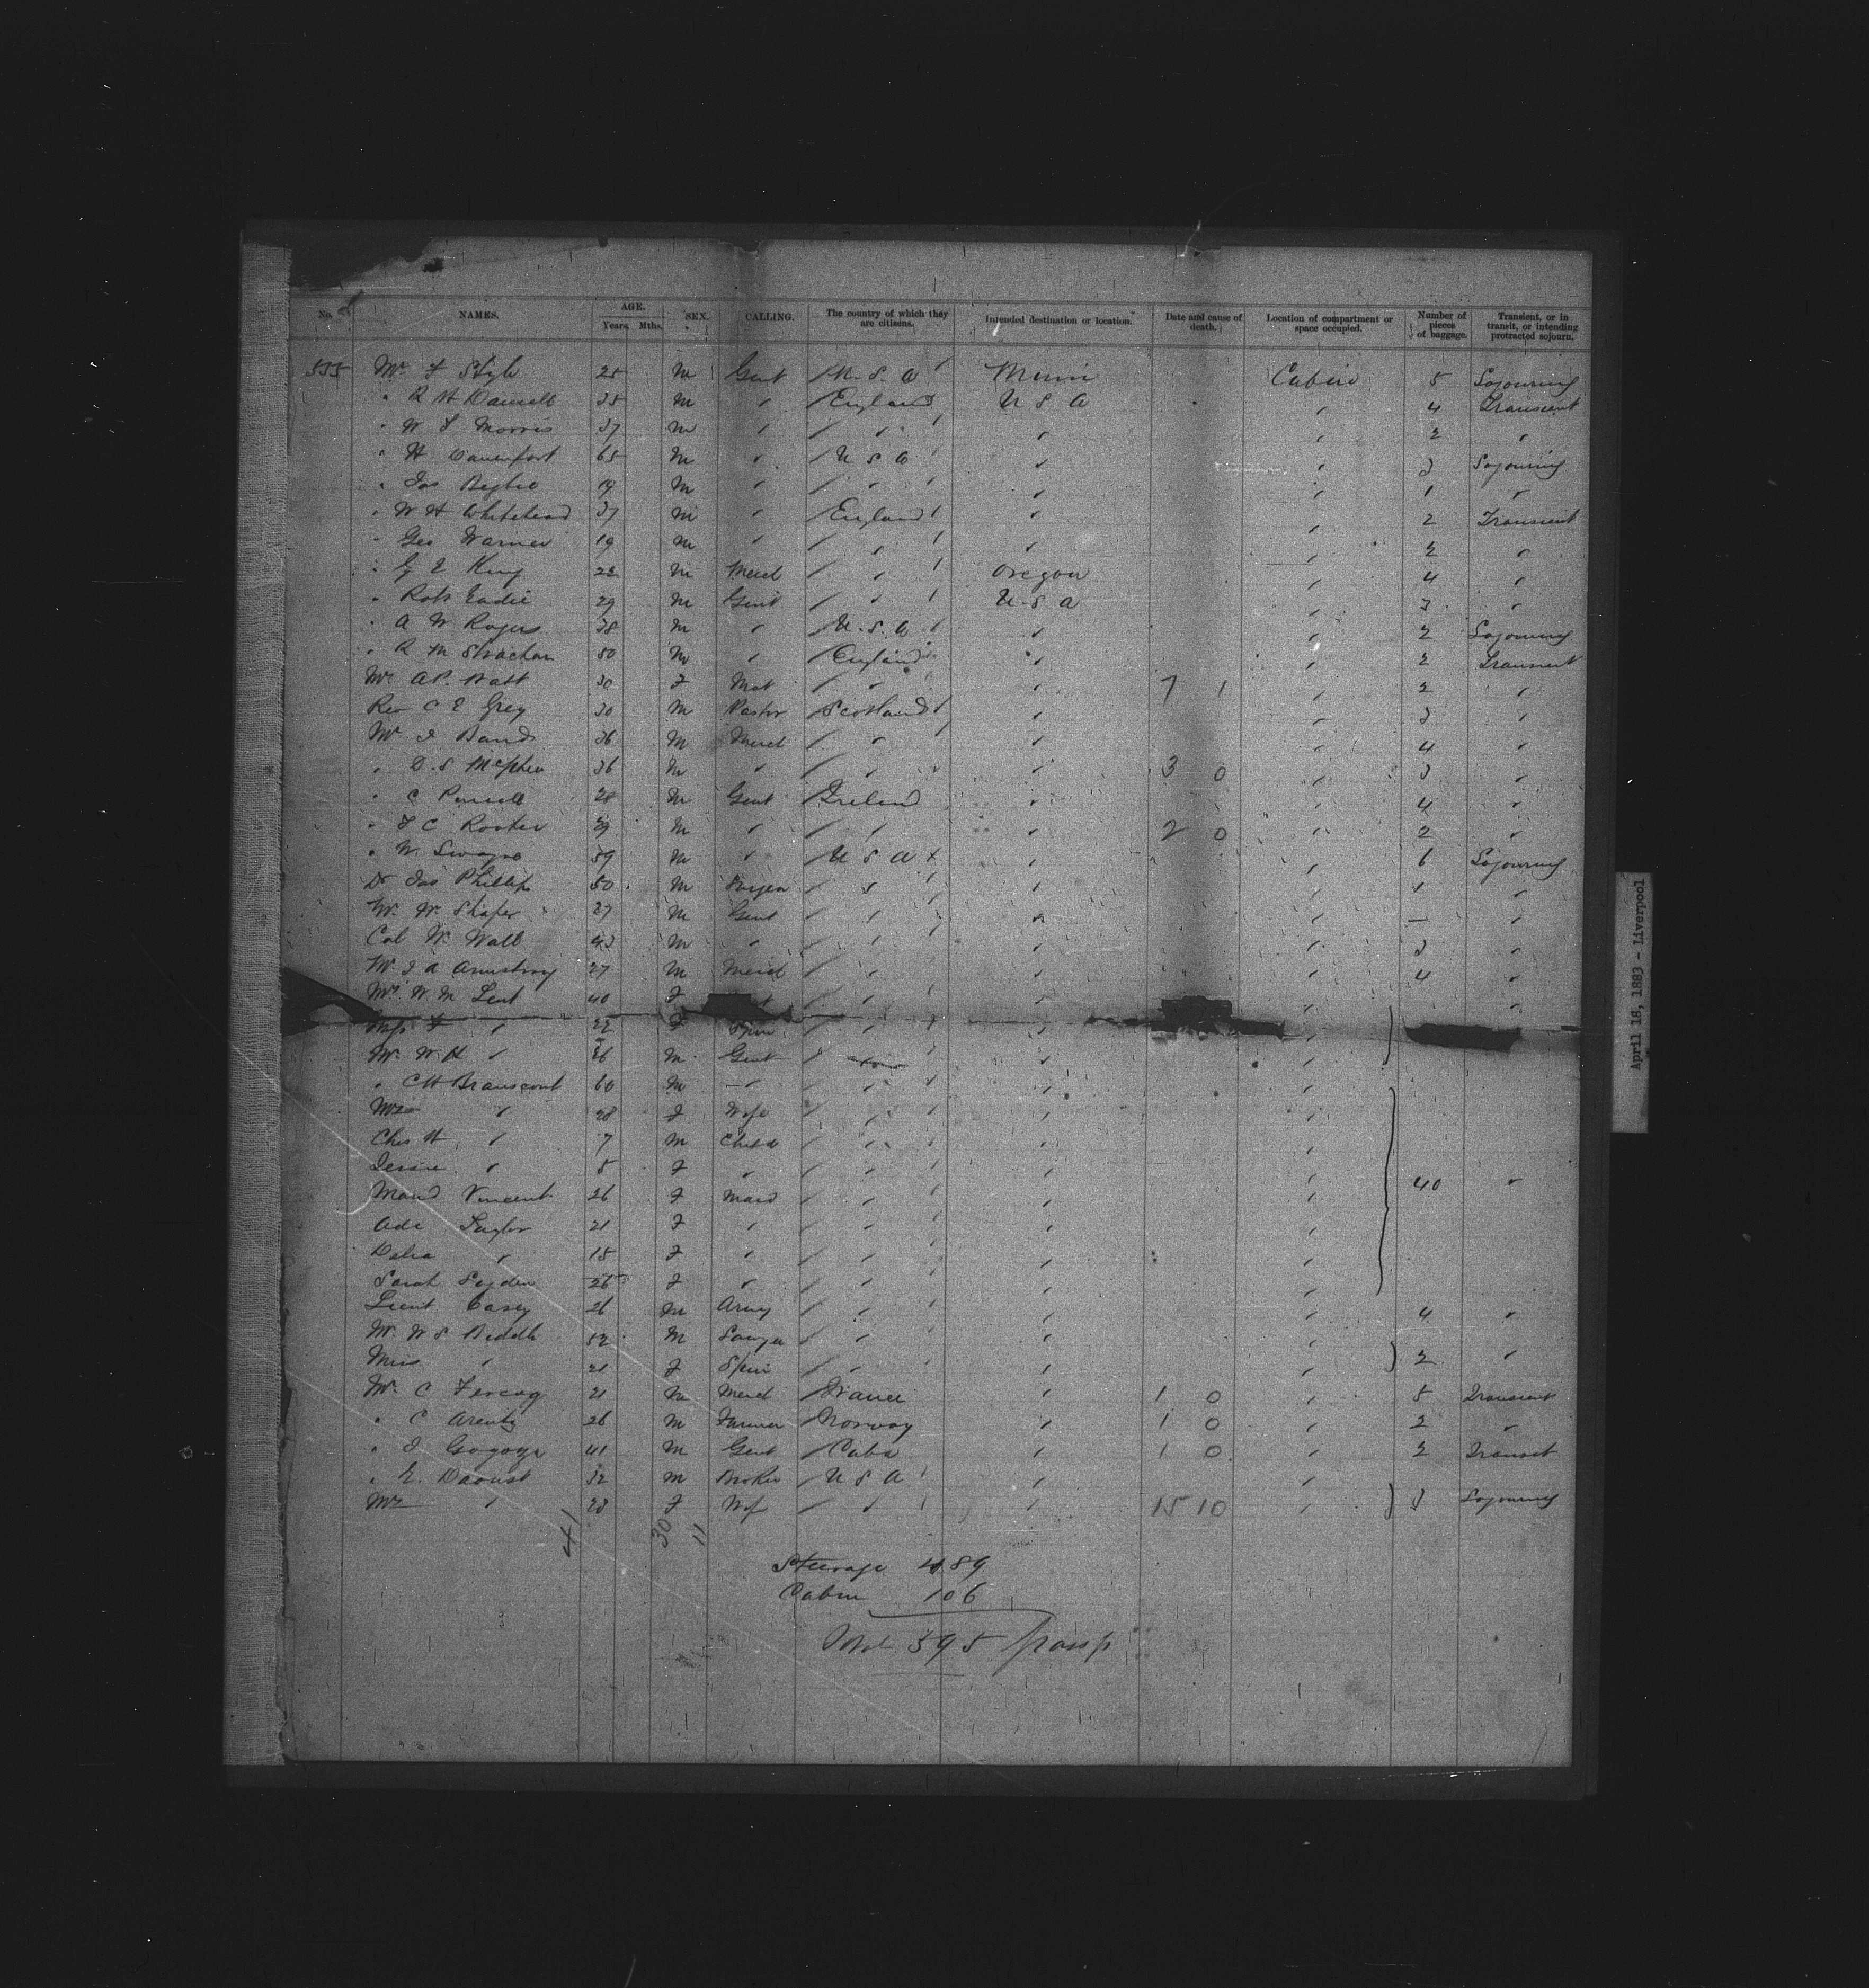 No. NAMES. AGE. Years. Mths. SEX. CALLING. The country of which they are citizens. Intended destination or location. Date and cause of death. Location of compartment or space occupied. Number of pieces of baggage. Transient, or in transit, or intending protracted sojourn.
555 Mr F Style 25 M Gent U.S.A Cabin 5 Sojourning
" R H 35 M " England U S A " 4 Transient
" W F Morris 37 M " " " " 2 "
" H Davenport 65 M " U S A " " 3 Sojourning
" Jas 19 M " " " " 1 "
" W H Whitehead 37 M " England " " 2 Transient
" Geo Warner 19 M " " " " 2 "
" G E King 22 M Merct " Oregon " 4 "
" Robt Eadie 29 M Gent " U.S.A " 3 "
" A W Rogers 38 M " U.S.A " " 2 Sojourning
" R M Strachan 50 M " England " " 2 Transient
Mrs A P. Watt 30 F Mat " " 7 1 " 2 "
Rev C E Grey 30 M Pastor Scotland " " 3 "
Mr J 36 M Merct " " " 4 "
" D. S. McPhee 36 M " " " 3 0 " 3 "
" C 28 M Gent Ireland " " 4 "
" F C 29 M " " " 2 0 " 2 "
" W. Swayne 59 M " U S A " " 6 Sojourning
Dr Jas Phillip 50 M " " " "
Mr W Shafer 27 M Gent " " " — "
Col W. Wall 43 M " " " " 3 "
Mr J A Armstrong 27 M Merct " " " 4 "
Mrs W M Lent 40 F " " " "
Miss F " 22 F Spin " " "
Mr W H " 26 M Gent " " "
" C H Branscomb 60 M " " " "
Mrs " 28 F Wife " " "
Chas H " 7 M Child " " "
Jessie " 5 F " " " "
Maud Vincent 26 F Maid " " " 40 "
Ada Taylor 21 F " " " "
Delia " 15 F " " " "
Sarah 25 F " " " "
Lieut Casey 26 M Army " " " 4 "
Mr. W S Biddle 52 M Lawyer " " "
Miss " 21 F Spin " " " 2 "
Mr C 21 M Merct France " 1 0 " 5 Transient
" C Arentz 26 M Farmer Norway " 1 0 " 2 "
" J 41 M Gent Cuba " 1 0 " 2 Transit
" E. Daoust 32 M Broker U S A " "
Mrs " 28 F Wife " " 15 10 " 3 Sojourning
41 30 11
Steerage 489
Cabin 106
Total 595 passp
April 18, 1883 - Liverpool